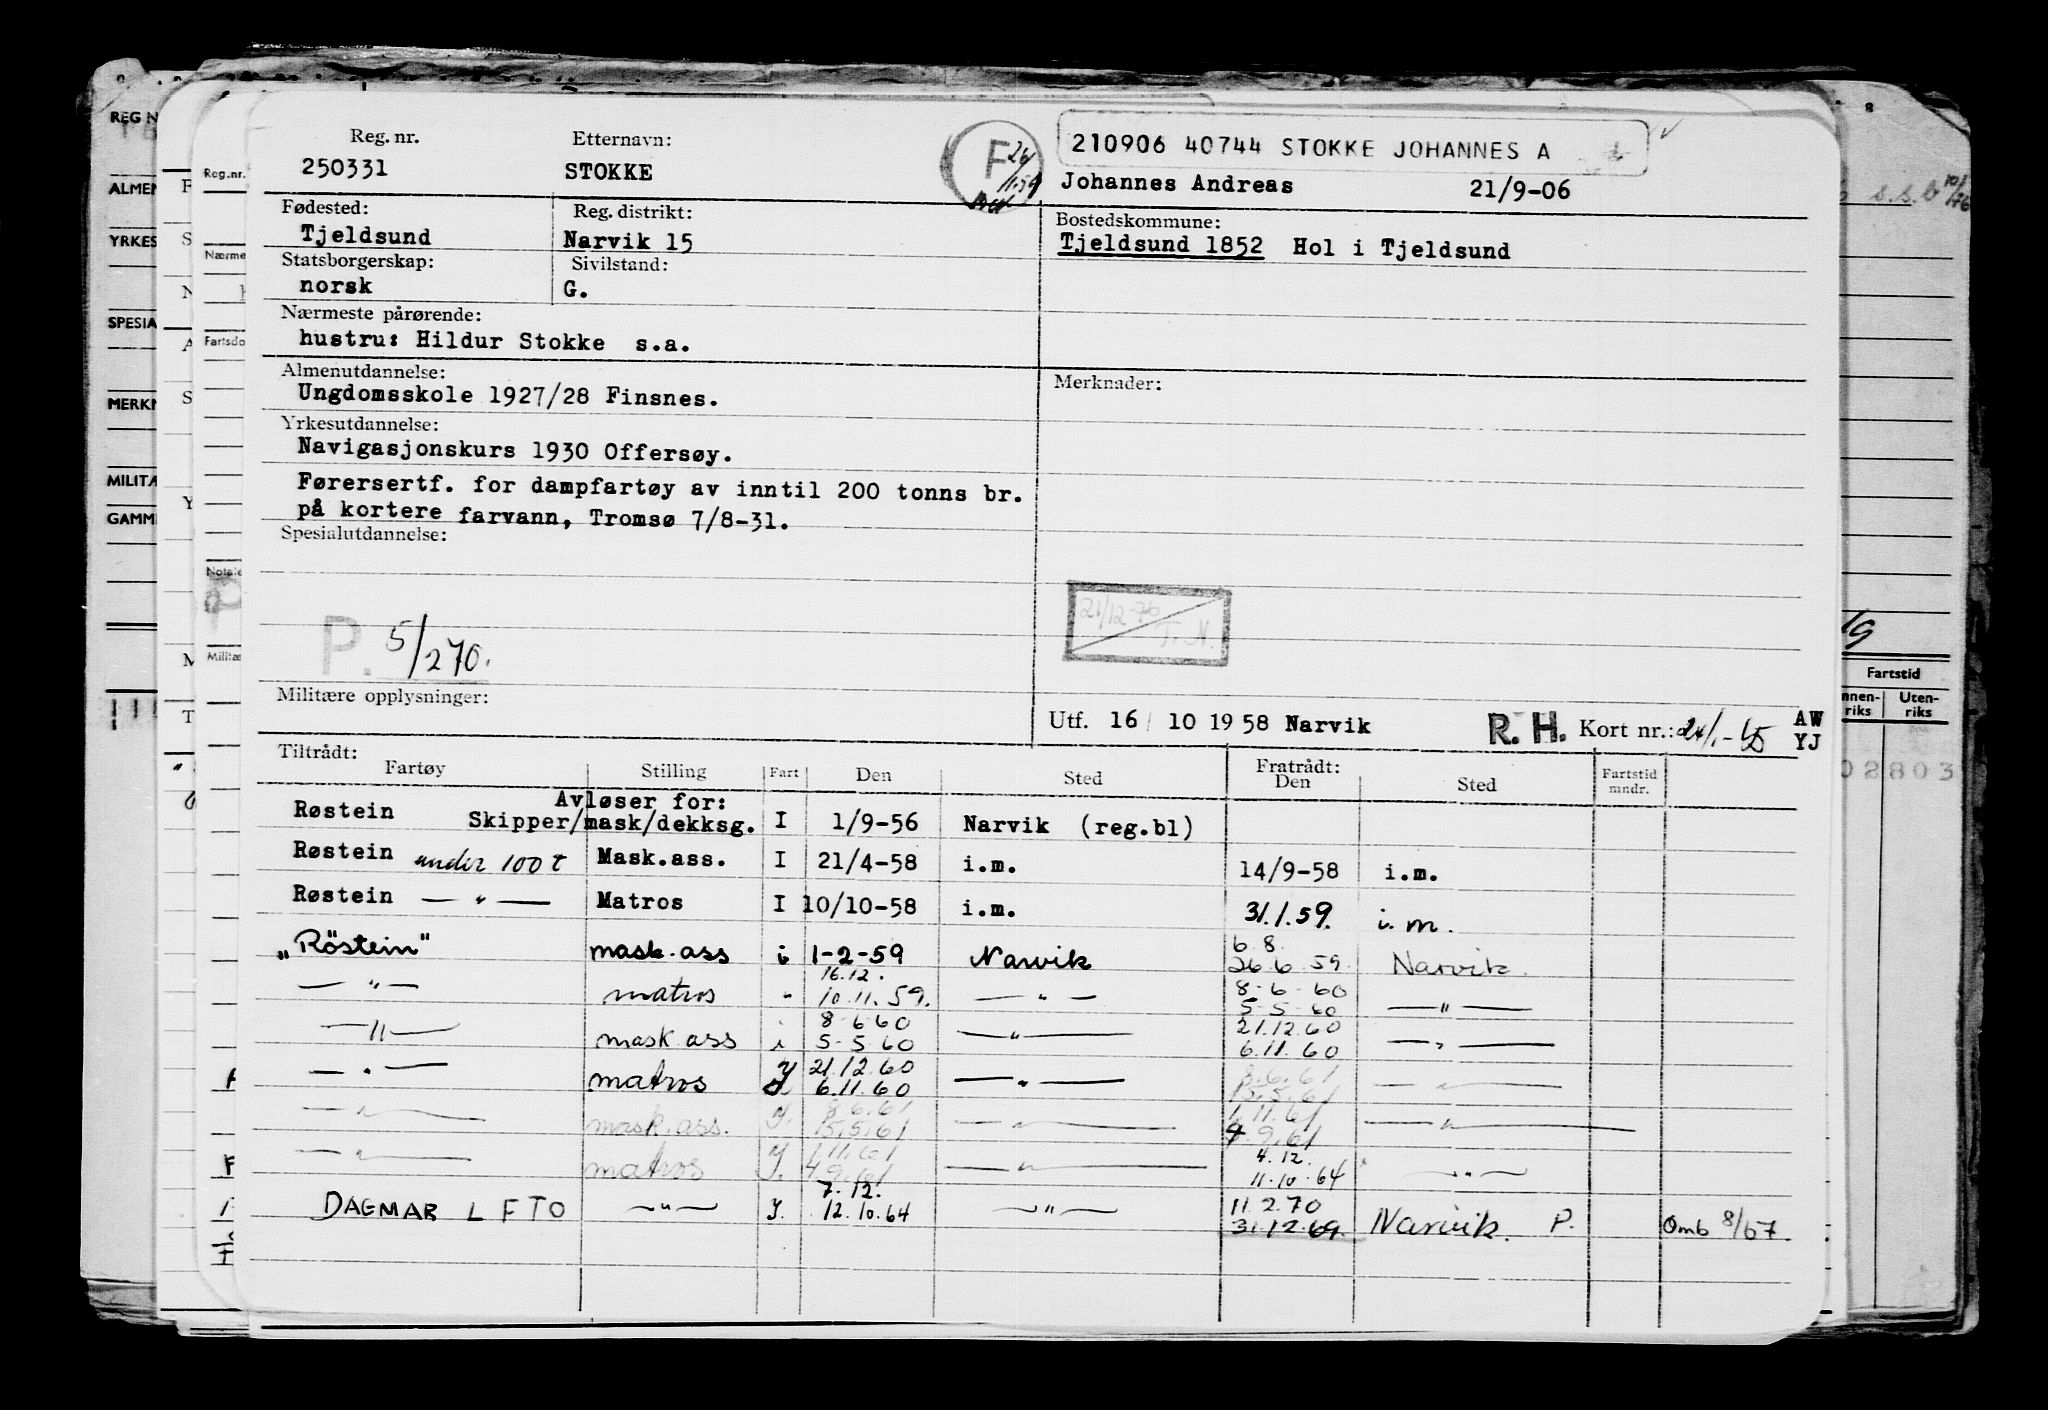 Reg. nr. Etternavn:
250331 STOKKE
F 26/1.59
210906 40744 STOKKE JOHANNES A
Johannes Andreas 21/9-06
Fødested: Reg. distrikt:
Tjeldsund Narvik 15
Bostedskommune:
Tjeldsund 1852 Hol i Tjeldsund
Statsborgerskap: Sivilstand:
norsk G.
Nærmeste pårørende:
hustru: Hildur Stokke s.a.
Almenutdannelse:
Ungdomsskole 1927/28 Finsnes.
Merknader:
Yrkesutdannelse:
Navigasjonskurs 1930 Offersøy.
Førersertf. for dampfartøy av inntil 200 tonns br.
på kortere farvann, Tromsø 7/8-31.
Spesialutdannelse:
P. 5/270.
21/12-76
T. N.
Militære opplysninger:
Utf. 16/10 1958 Narvik R. H. Kort nr.: AW
YJ
Tiltrådt: Fratrådt:
Fartøy Stilling Fart Den Sted Den Sted Fartstid mndr.
Avløser for:
Røstein Skipper/mask/dekksg. I 1/9-56 Narvik (reg.bl)
Røstein under 100 t Mask.ass. I 21/4-58 i.m. 14/9-58 i.m.
Røstein — " — Matros I 10/10-58 i.m. 31.1.59. i.m.
"Röstein" mask.ass i 1-2-59 Narvik 6.8. 26.6.59 Narvik.
— " — matros " 16.12. 10.11.59. — " — 8-6-60 5-5-60 — " —
— " — mask ass i 8-6-60 5-5-60 — " — 21.12.60 6.11.60 — " —
— " — matros Y 21.12.60 6.11.60 — " — 8.6.61 15.5.61 — " —
— " — mask.ass. Y. 8.6.61 15.5.61 — " — 1.11.61 4.9.61 — " —
— " — matros Y. 1.11.61 4.9.61 — " — 4.12. 11.10.64 — " —
DAGMAR LFTO — " — Y. 7.12. 12.10.64 — " — 11.2.70 31.12.69. Narvik. P. Omb 8/67
REG N
ALMEN
YRKES
SPESIA
MERKN
MILITÆ
GAMM
Reg.nr.
Nærme
Fartsdo
Notale
Militæ
s.s.b 10/76
Fartstid
nnen-riks Uten-riks
02803